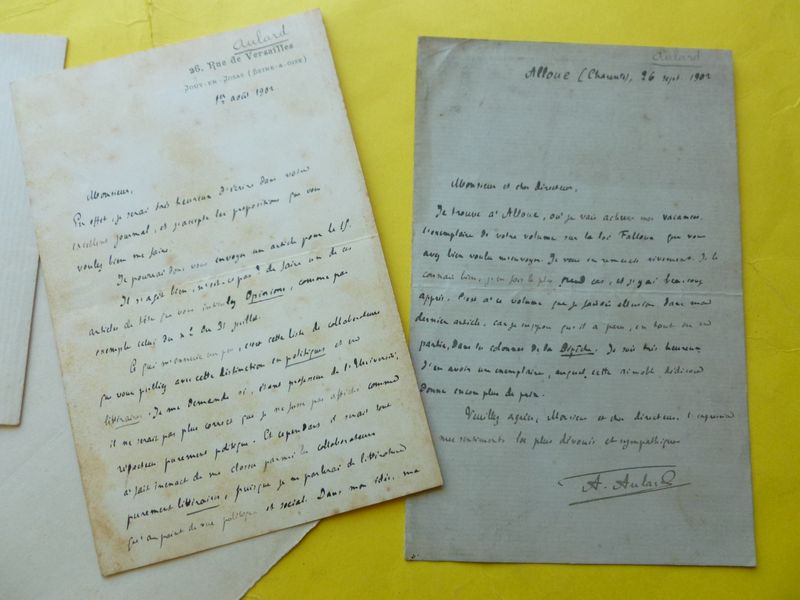 Aulard
26, Rue de Versailles
Jouy-en-Josas (Seine-&-Oise)
1er août 1902
Monsieur,
En effet, je serai très heureux d'écrire dans votre
excellent journal, et j'accepte les propositions que vous
voulez bien me faire.
Je pourrai donc vous envoyer un article pour le 15.
Il s'agit bien, n'est-ce pas? de faire un de ces
articles de tête que vous intitulez Opinions, comme par
exemple celui du n° du 31 juillet.
Ce qui m'ennuie un peu, c'est cette liste de collaborateurs
que vous publiez avec cette distinction en politiques et en
littéraires. Je me demande si, étant professeur de l'Université,
il ne serait pas plus correct que je ne fusse pas affiché comme
rédacteur purement politique. Et cependant il serait tout
à fait inexact de me classer parmi les collaborateurs
purement littéraires, puisque je ne parlerai de littérature
qu'au point de vue politique et social. Dans mon idée, ma
Aulard
Alloue (Charente), 26 sept. 1902
Monsieur et cher directeur,
Je trouve à Alloue, où je vais achever mes vacances,
l'exemplaire de votre volume sur la loi Falloux que vous
avez bien voulu m'envoyer. Je vous en remercie vivement. Je le
connais bien, j'en fais le plus grand cas, et j'y ai beaucoup
appris. C'est à ce volume que je faisais allusion dans mon
dernier article, car je suppose qu'il a paru, en tout ou en
partie, dans les colonnes de la Dépêche. Je suis très heureux
d'en avoir un exemplaire, auquel cette aimable dédicace
donne encore plus de prix.
Veuillez agréer, Monsieur et cher directeur, l'expression
mes sentiments les plus dévoués et sympathiques
A. Aulard